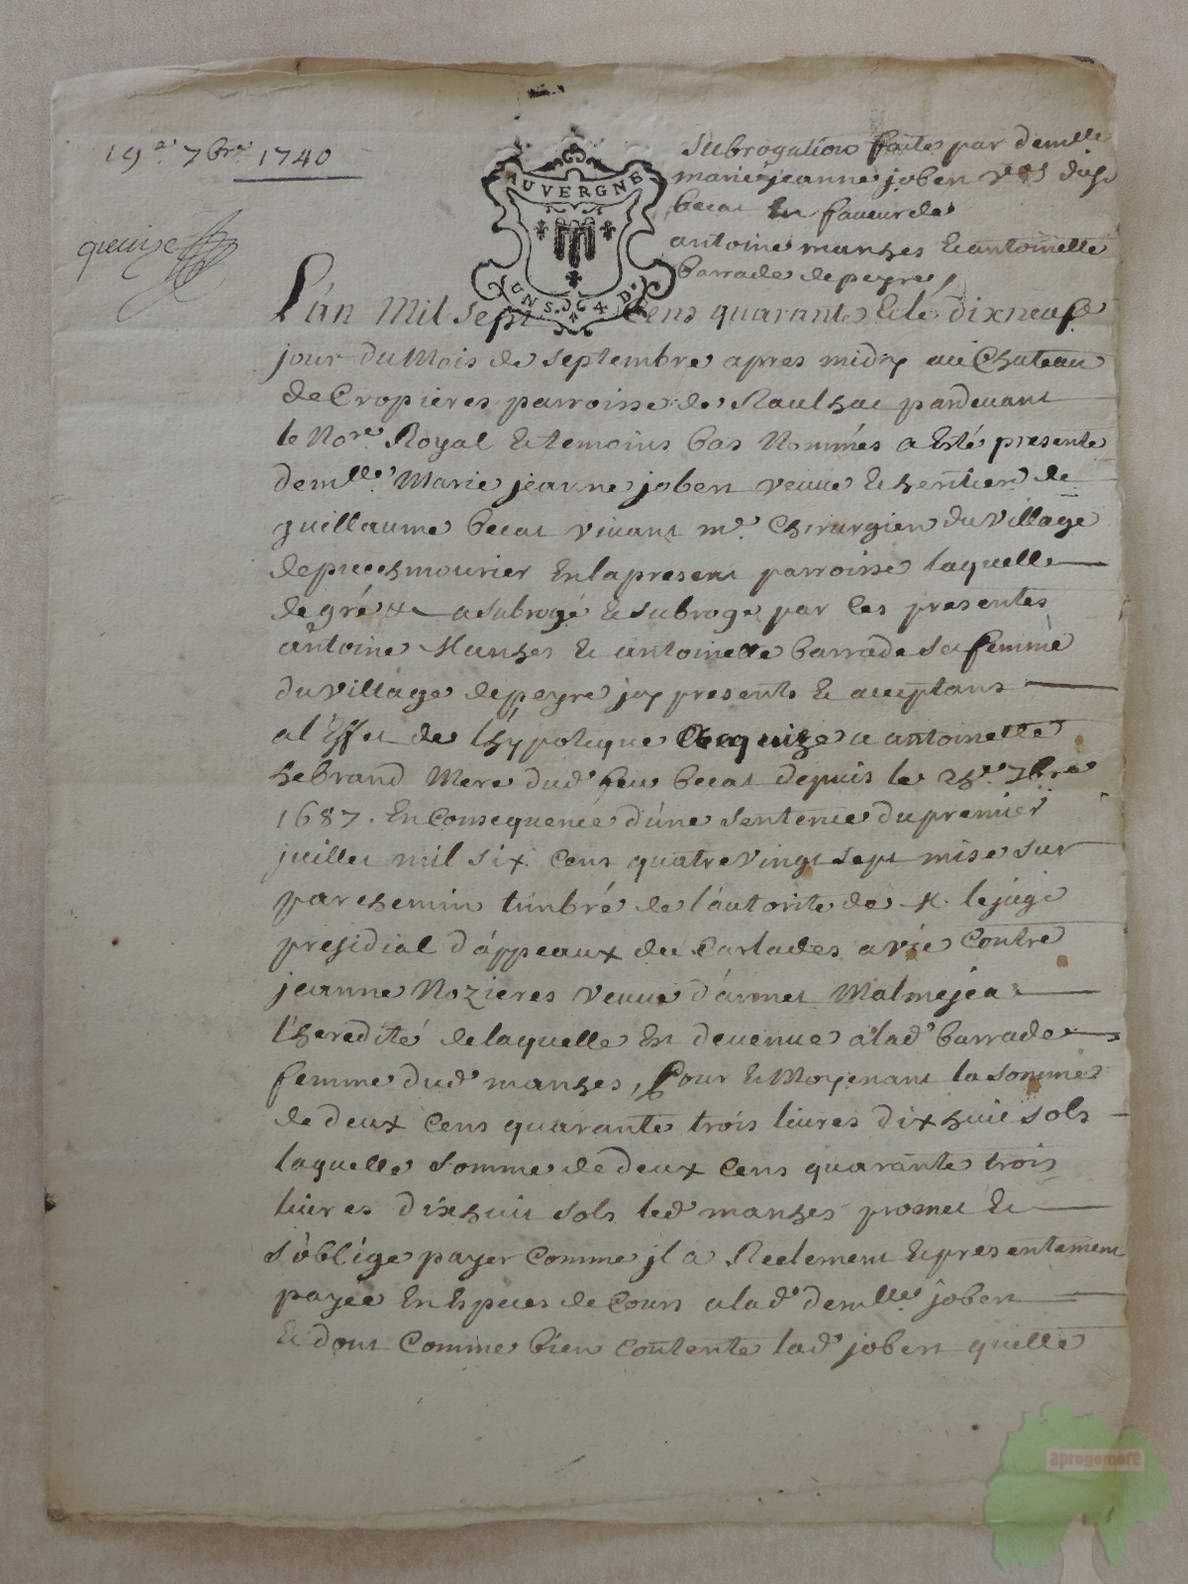 19e 7bre 1740
AUVERGNE
UN S. 4 D.
Subrogation faite par demlle
marie jeanne jobert
becat En faveur de
antoine manhes & antoinette
barrade de peyre
L'an Mil sept Cens quarante & le dixneuf
jour du Mois de septembre apres midy au Chateau
de Cropieres parroisse de Raulhac pardevant
le Nore Royal & temoins bas Nommés a Esté presente
demlle Marie jeanne jobert veuve & heritiere de
guillaume becat vivant me Chirurgien du Village
de puechmourier En la presant parroisse laquelle
de gré &c a subrogé & subroge par Ces presentes
antoine Manhes & antoinette barrade sa femme
du village de peyre jcy presents & acceptans
a l'Effet de l'hypoteque acquize a antoinette
hebrard Mere dud. feu becat depuis le 7bre
1687. En Consequence d'une sentence du premier
juillet mil six Cens quatre vingt sept mise sur
parchemin timbré de l'autorite de M. le juge
presidial d'appeaux du Carlades a vic Contre
jeanne Nozieres veuve d'armet Malmejea
l'heredité de laquelle Est devenue a lad. barrade
femme dud. manhes, Pour & Moyenant la somme
de deux Cens quarante trois livres dix huit sols
laquelle somme de deux Cens quarante trois
livres dixhuit sols led. manhes promet &
s'oblige payer Comme jl a Reelement & presentement
payée En Especes de Cours a lad. demlle jobert
& dont Comme bien Contente lad. jobert quitte
aprogemere